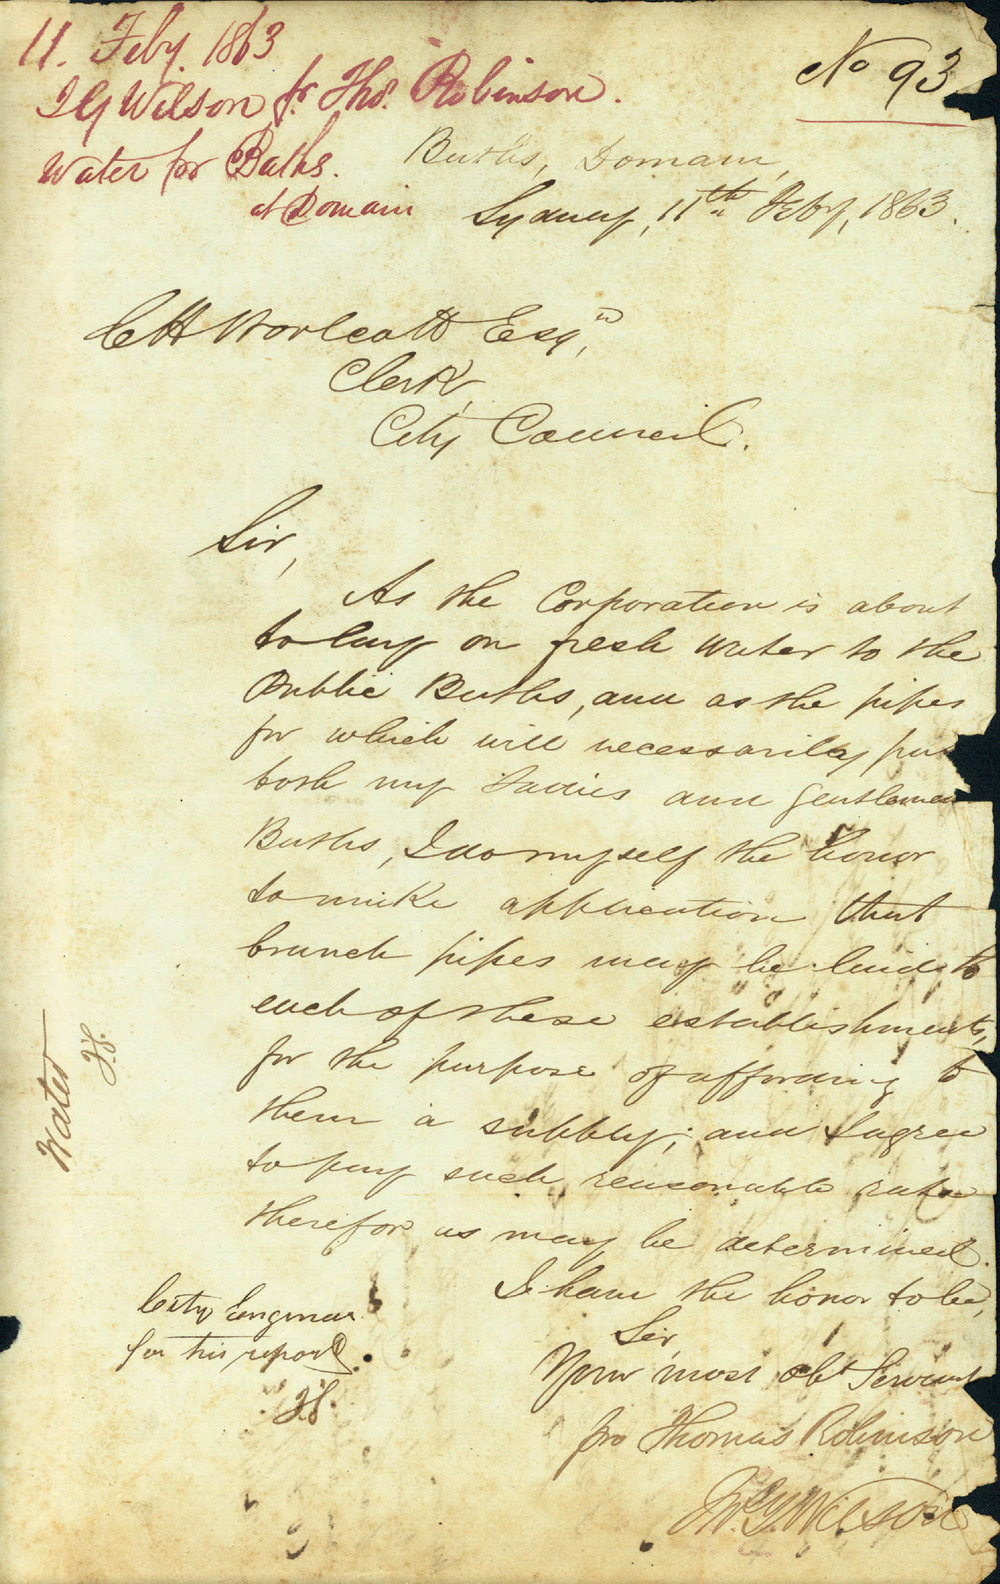 11. Feby. 1863
J G Wilson fr Thos. Robinson.
Water for Baths.
at Domain
No 93
Baths, Domain,
Sydney, 11th Feby, 1863.
C H Woolcott Esqre,
Clerk,
City Council.
Sir,
As the Corporation is about
to lay on fresh water to the
Public Baths, and as the pipes
for which will necessarily pass
both my Ladies and Gentlemen
Baths, I do myself the honor
to make application that
branch pipes may be laid to
each of these establishments,
for the purpose of affording to
them a supply; and I agree
to pay such reasonable rate
therefor as may be determined.
I have the honor to be,
Sir,
Your most obt Servant
pro Thomas Robinson
Wilson
Water
City Engineer
for his report.